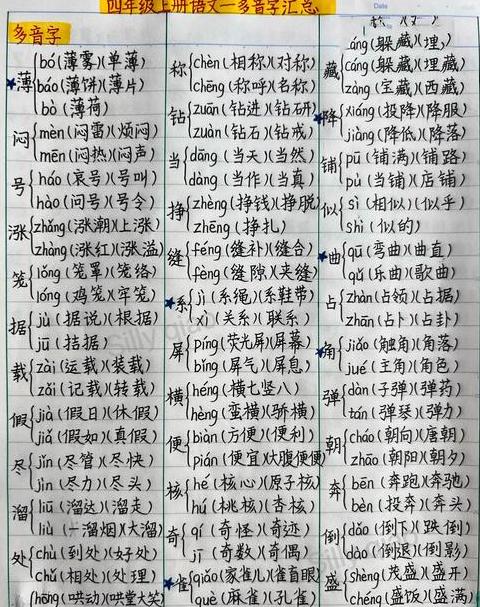 四年级上册语文一多音字汇总
Date
多音字
薄
bó (薄雾)(单薄)
báo (薄饼)(薄片)
bò (薄荷)
闷
mèn (闷雷)(烦闷)
mēn (闷热)(闷声)
号
háo (哀号)(号叫)
hào (问号)(号令)
涨
zhǎng (涨潮)(上涨)
zhàng (涨红)(涨溢)
笼
lǒng (笼罩)(笼络)
lóng (鸡笼)(牢笼)
据
jù (据说)(根据)
jū (拮据)
载
zài (运载)(装载)
zǎi (记载)(转载)
假
jià (假日)(休假)
jiǎ (假如)(真假)
尽
jǐn (尽管)(尽快)
jìn (尽力)(尽头)
溜
liū (溜达)(溜走)
liù (一溜烟)(大溜)
处
chù (到处)(好处)
chǔ (相处)(处理)
hōng (哄动)(哄堂大笑)
称
chèn (相称)(对称)
chēng (称呼)(名称)
钻
zuān (钻进)(钻研)
zuàn (钻石)(钻戒)
当
dāng (当天)(当然)
dàng (当作)(当真)
挣
zhèng (挣钱)(挣脱)
zhēng (挣扎)
缝
féng (缝补)(缝合)
fèng (缝隙)(夹缝)
系
jì (系绳)(系鞋带)
xì (关系)(联系)
屏
píng (荧光屏)(屏幕)
bǐng (屏气)(屏息)
横
héng (横七竖八)
hèng (蛮横)(骄横)
便
biàn (方便)(便利)
pián (便宜)(大腹便便)
核
hé (核心)(原子核)
hú (桃核)(杏核)
奇
qí (奇怪)(奇迹)
jī (奇数)(奇偶)
雀
qiǎo (家雀儿)(雀盲眼)
què (麻雀)(孔雀)
藏
áng (躲藏)(埋)
cáng (躲藏)(埋藏)
zàng (宝藏)(西藏)
降
xiáng (投降)(降服)
jiàng (降低)(降落)
铺
pū (铺满)(铺路)
pù (当铺)(店铺)
似
sì (相似)(似乎)
shì (似的)
曲
qū (弯曲)(曲直)
qǔ (乐曲)(歌曲)
占
zhàn (占领)(占据)
zhān (占卜)(占卦)
角
jiǎo (触角)(角落)
jué (主角)(角色)
弹
dàn (子弹)(弹药)
tán (弹琴)(弹力)
朝
cháo (朝向)(唐朝)
zhāo (朝阳)(朝夕)
奔
bēn (奔跑)(奔驰)
bèn (投奔)(奔头)
倒
dǎo (倒下)(跌倒)
dào (倒退)(倒影)
盛
shèng (茂盛)(盛开)
chéng (盛饭)(盛满)